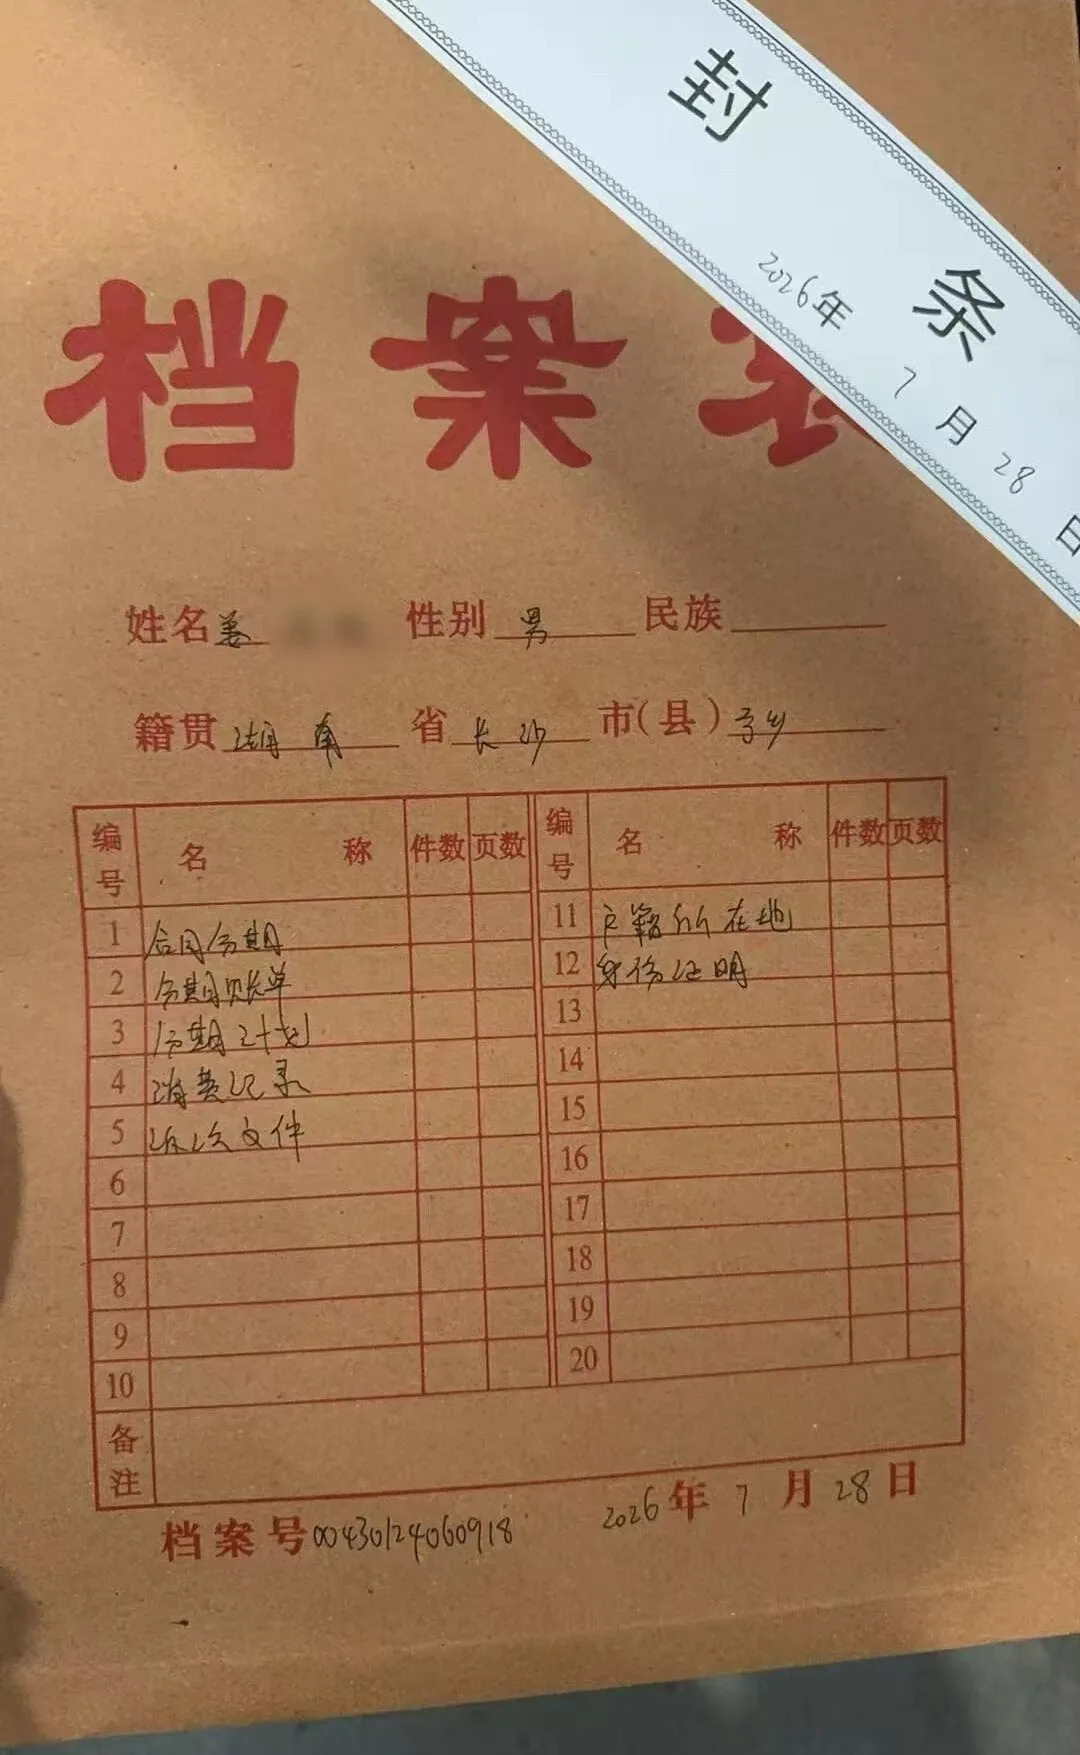 封条
2026年7月28日
档案袋
姓名 姜 性别 男 民族
籍贯 湖南 省 长沙 市(县) 宁乡
编号 名称 件数 页数 编号 名称 件数 页数
1 合同分期 11 户籍所在地
2 分期账单 12 身份证明
3 分期计划 13
4 消费记录 14
5 诉讼文件 15
6 16
7 17
8 18
9 19
10 20
备注
档案号 00430124060918 2026年7月28日